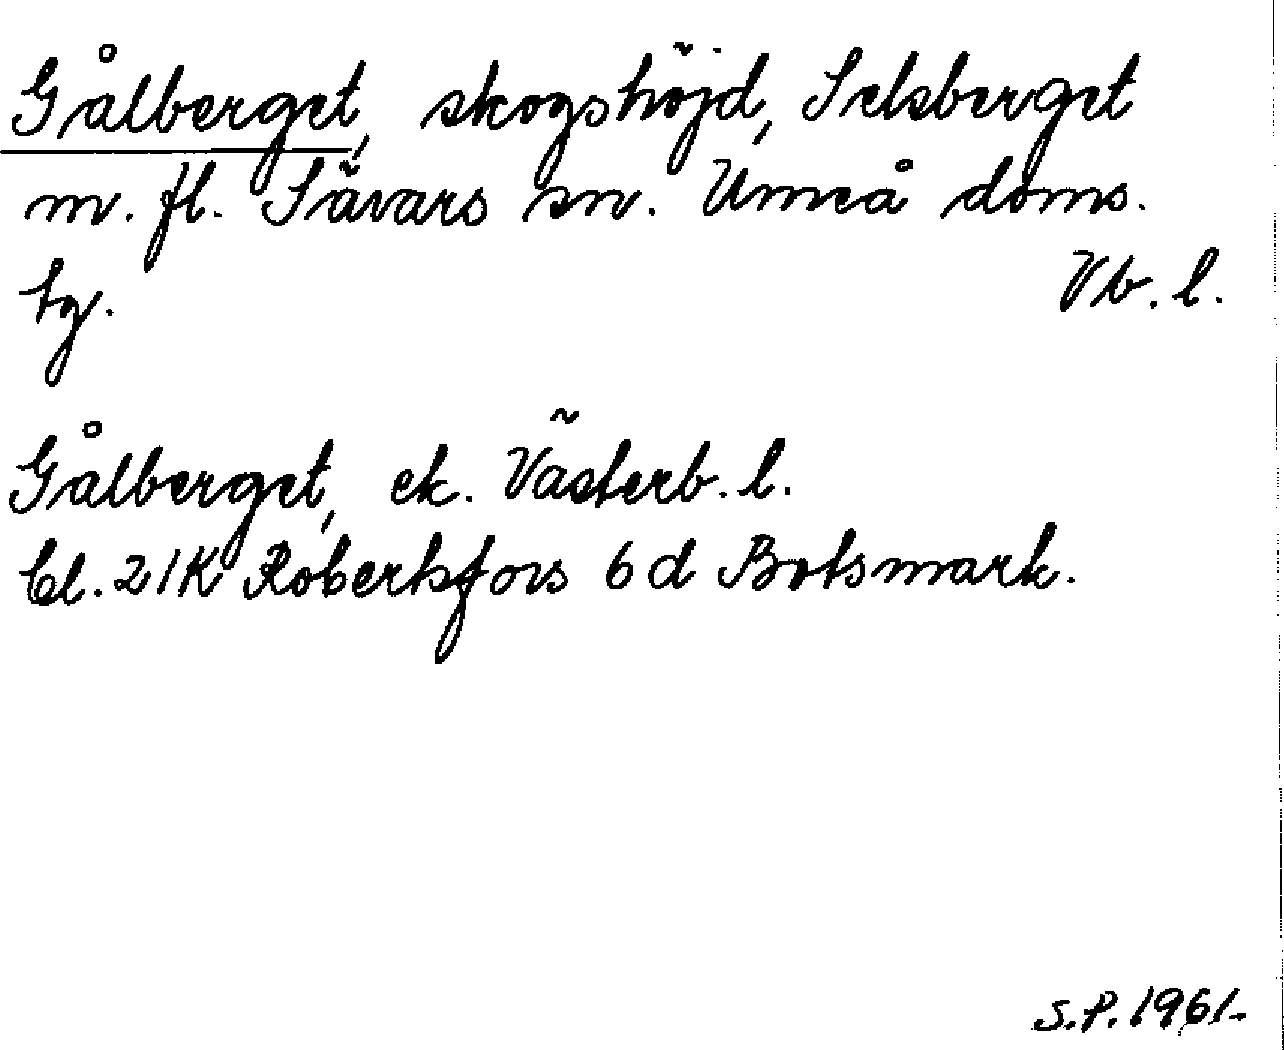 Gålberget, skogshöjd, Selsberget
m. fl. Sävars sn. Umeå doms.
tg. Vb. l.
Gålberget, ek. Västerb. l.
bl. 21K Robertsfors 6 d Botsmark.
S.P. 1961.